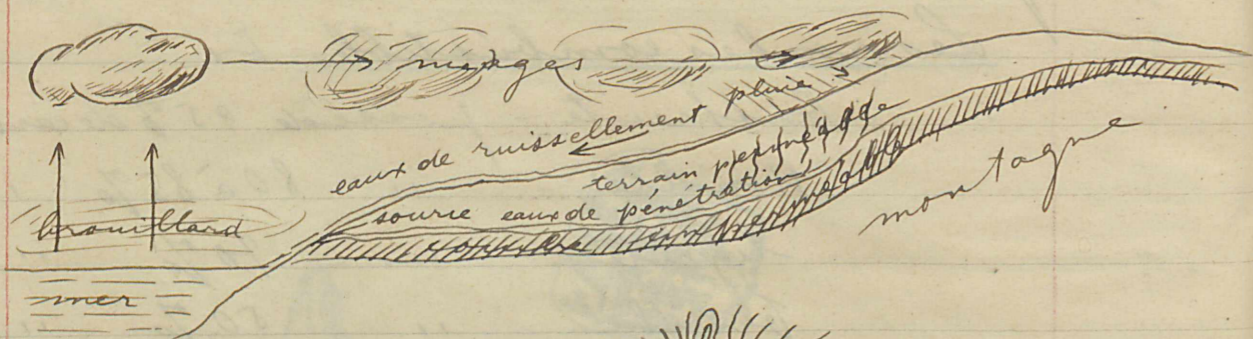 nuages
pluie
eaux de ruissellement
terrain perméable
source eaux de pénétration
montagne
brouillard
mer